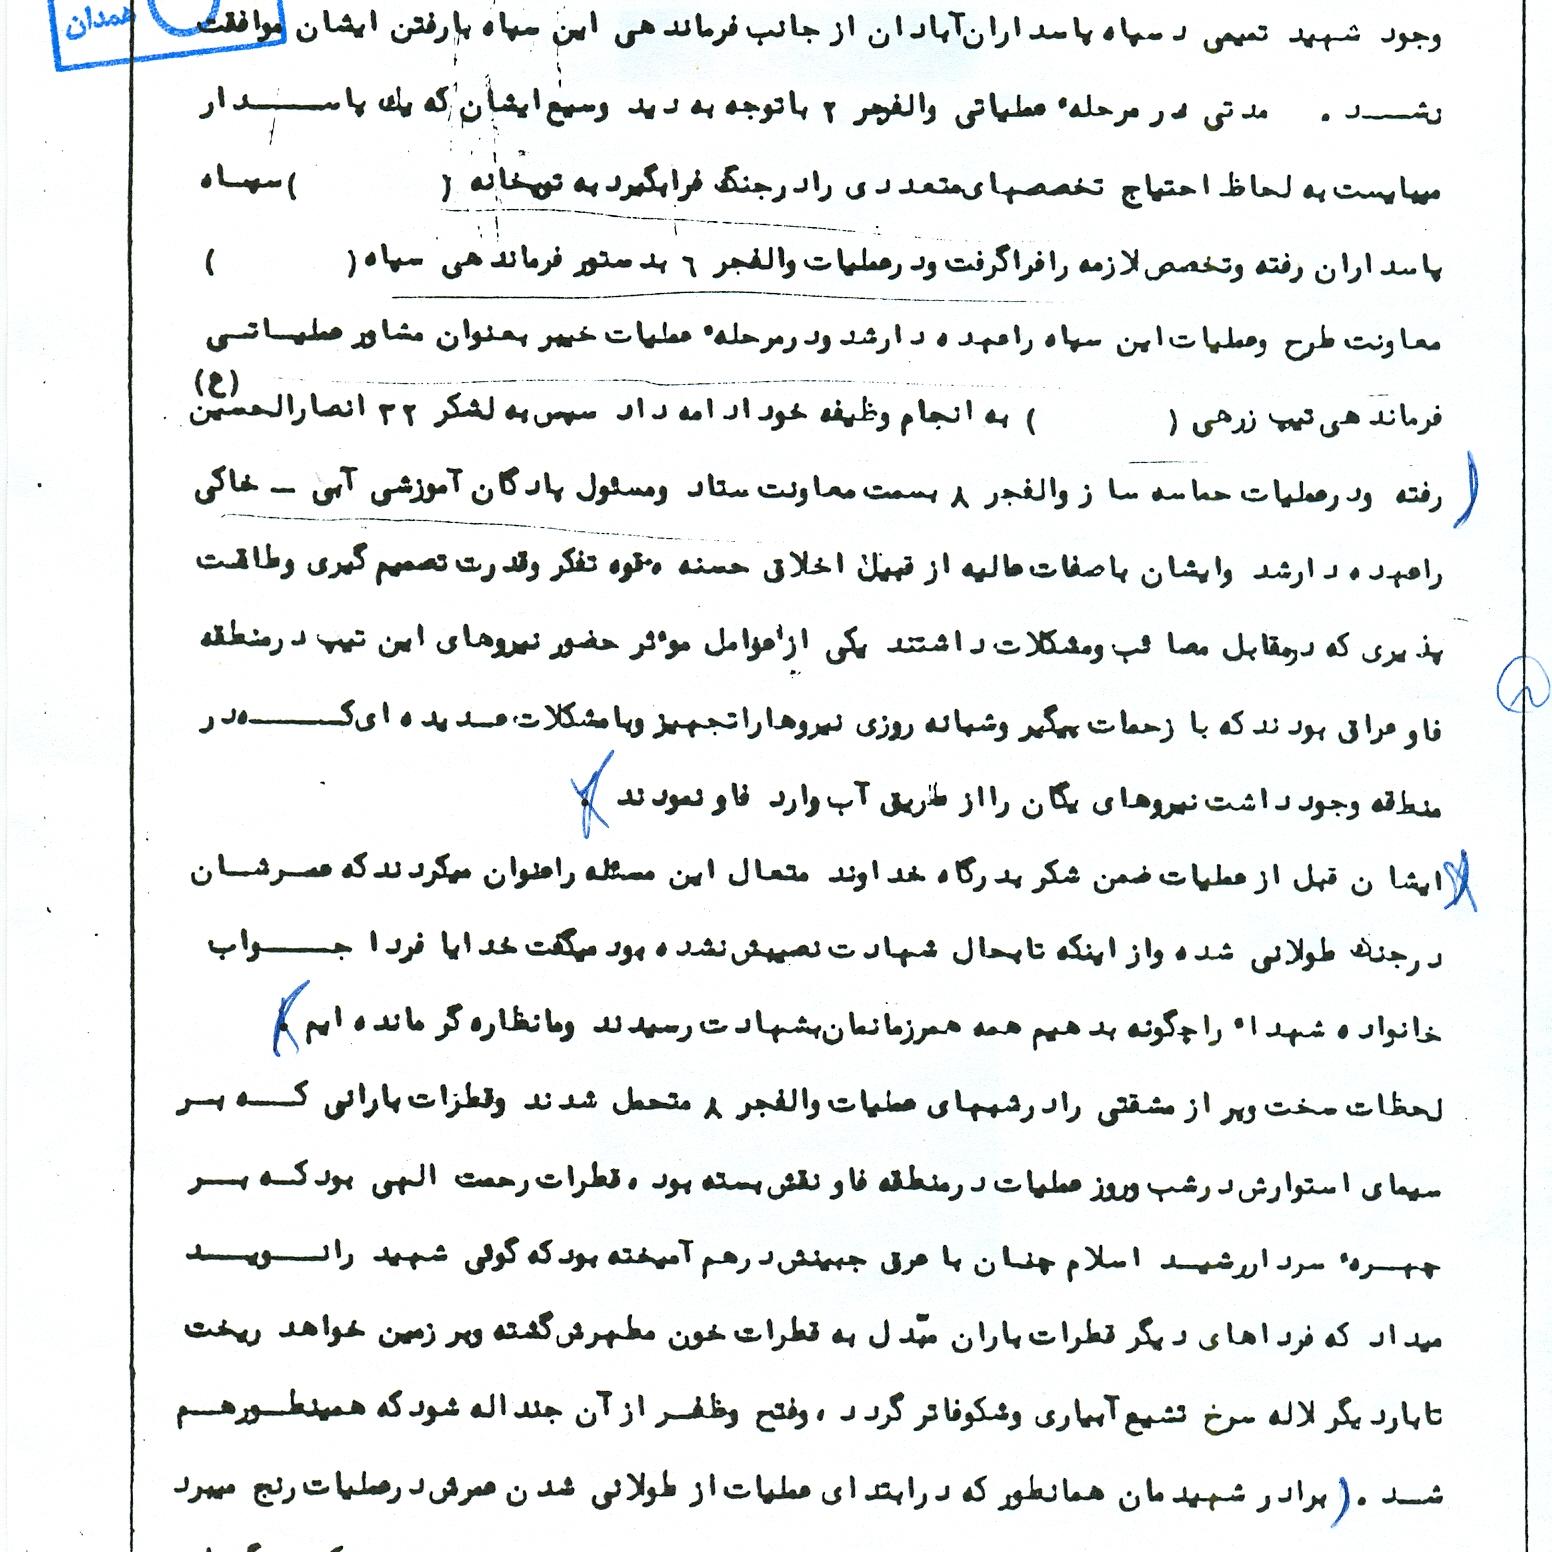 همدان
وجود شهید تمیمی در سپاه پاسداران آبادان از جانب فرماندهی این سپاه بارفتن ایشان موافقت
نشد . مدتی در مرحله عملیاتی والفجر ۲ باتوجه به دید وسیع ایشان که یک پاسدار
میبایست به لحاظ احتیاج تخصصهای متعددی رادرجنگ فرابگیرد به توپخانه ( ) سپاه
پاسداران رفته وتخصص لازمه رافراگرفت ودرعملیات والفجر ٦ بدستور فرماندهی سپاه ( )
معاونت طرح وعملیات این سپاه راعهده دارشد ودرمرحله عملیات خیبر بعنوان مشاور عملیاتی
فرماندهی تیپ زرهی ( ) به انجام وظیفه خود ادامه داد سپس به لشکر ۳۲ انصارالحسین (ع)
رفته ودرعملیات حماسه ساز والفجر ۸ بسمت معاونت ستاد ومسئول پادگان آموزشی آبی - خاکی
راعهده دارشد وایشان باصفات عالیه از قبیل اخلاق حسنه ،قوه تفکر وقدرت تصمیم گیری وطاقت
پذیری که درمقابل مصائب ومشکلات داشتند یکی ازعوامل موثر حضور نیروهای این تیپ درمنطقه
فاو عراق بودند که با زحمات پیگیر وشبانه روزی نیروهاراتجهیز وبامشکلات عدیده ای که در
منطقه وجود داشت نیروهای یگان رااز طریق آب وارد فاو نمودند .
ایشان قبل از عملیات ضمن شکر بدرگاه خداوند متعال این مسئله راعنوان میکردند که عمرشان
درجنگ طولانی شده واز اینکه تابحال شهادت نصیبش نشده بود میگفت خدایا فردا جواب
خانواده شهداء راچگونه بدهیم همه همرزمانمان بشهادت رسیدند ومانظاره گر مانده ایم .
لحظات سخت وپر از مشقتی رادرشبهای عملیات والفجر ۸ متحمل شدند وقطرات بارانی که بر
سیمای استوارش درشب وروز عملیات درمنطقه فاو نقش بسته بود ، قطرات رحمت الهی بود که بر
چهره سرداررشید اسلام چنان با عرق جبینش درهم آمیخته بود که گوئی شهید رانوید
میداد که فرداهای دیگر قطرات باران مبّدل به قطرات خون مطهرش گشته وبر زمین خواهد ریخت
تاباردیگر لاله سرخ تشیع آبیاری وشکوفاتر گردد ، وفتح وظفر از آن جنداله شود که همینطورهم
شد . ( برادر شهیدمان همانطور که درابتدای عملیات از طولانی شدن عمرش درعملیات رنج میبرد